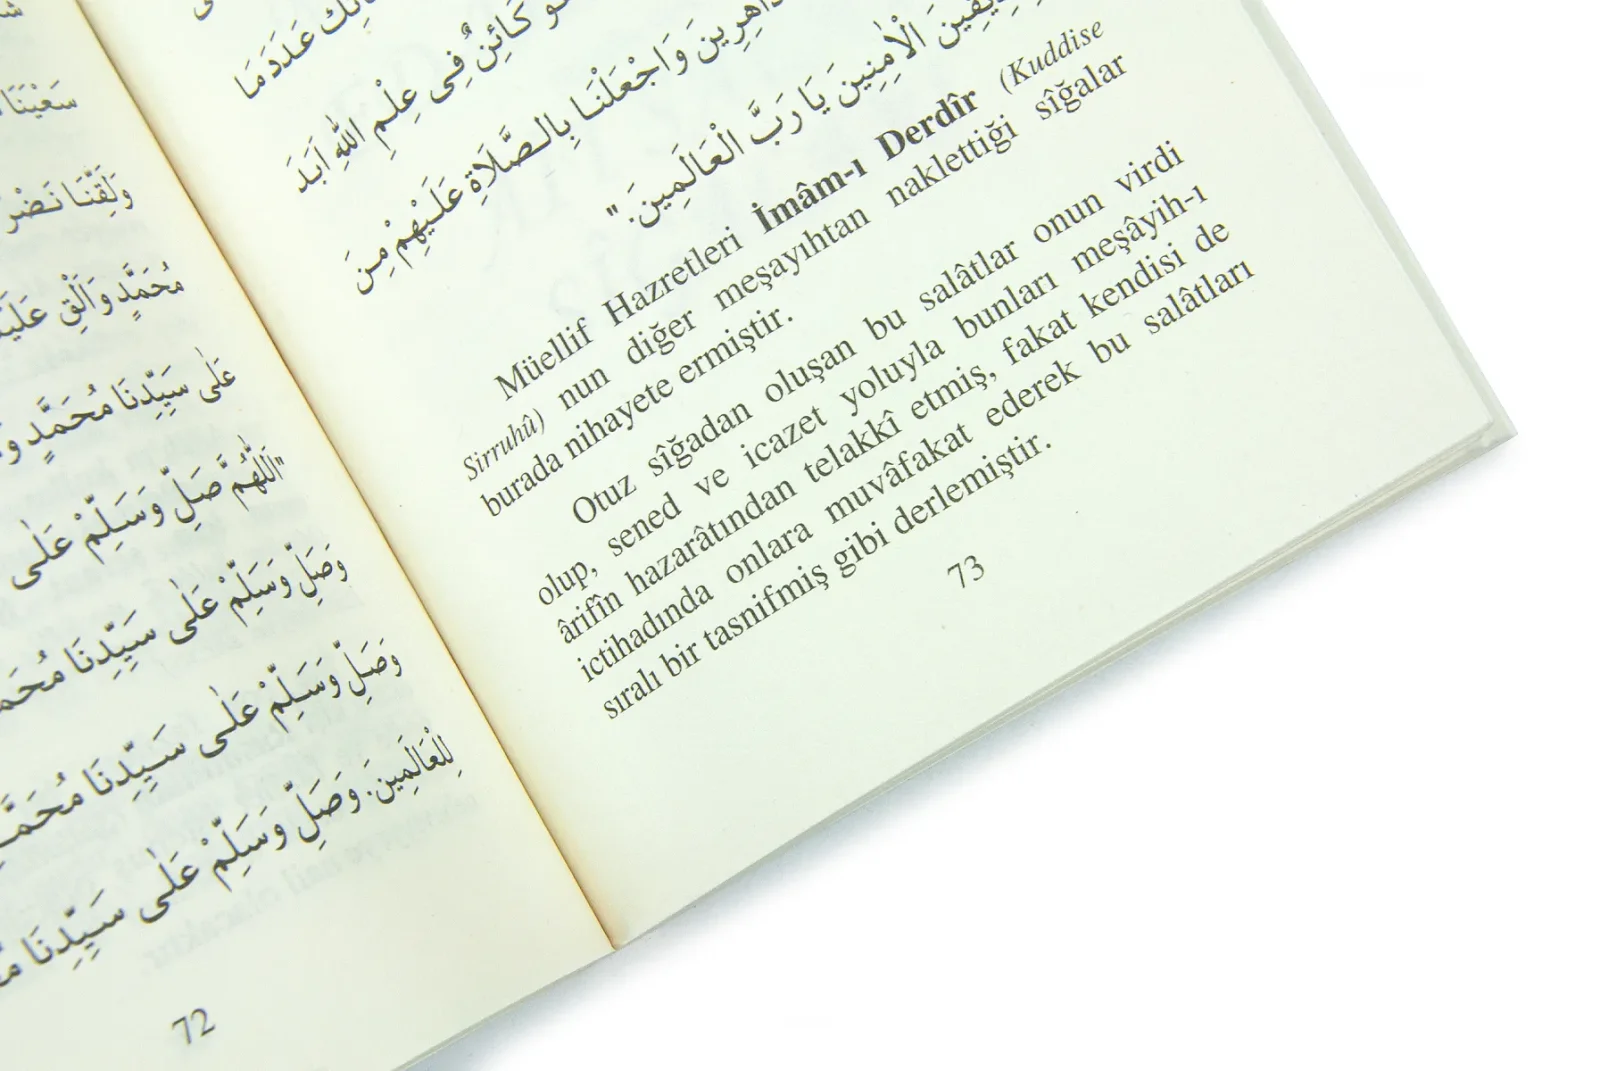 سَعْيَنَا
وَلَقِّنَا
مُحَمَّدٍ وَاَلْقِ
عَلٰى سَيِّدِنَا مُحَمَّدٍ
"اَللّٰهُمَّ صَلِّ وَسَلِّمْ عَلٰى
وَصَلِّ وَسَلِّمْ عَلٰى سَيِّدِنَا
وَصَلِّ وَسَلِّمْ عَلٰى سَيِّدِنَا
لِلْعَالَمِينَ. وَصَلِّ وَسَلِّمْ عَلٰى سَيِّدِنَا
72
عَدَدَ مَا
كَائِنٌ فِى عِلْمِ اللّٰهِ اَبَدَ
وَاجْعَلْنَا بِالصَّلَاةِ عَلَيْهِمْ مِنَ
الْاٰمِنِينَ يَا رَبَّ الْعَالَمِينَ."
Müellif Hazretleri İmâm-ı Derdîr (Kuddise
Sirruhû) nun diğer meşayıhtan naklettiği sîğalar
burada nihayete ermiştir.
Otuz sîğadan oluşan bu salâtlar onun virdi
olup, sened ve icazet yoluyla bunları meşâyih-ı
ârifîn hazarâtından telakkî etmiş, fakat kendisi de
ictihadında onlara muvâfakat ederek bu salâtları
sıralı bir tasnifmiş gibi derlemiştir.
73